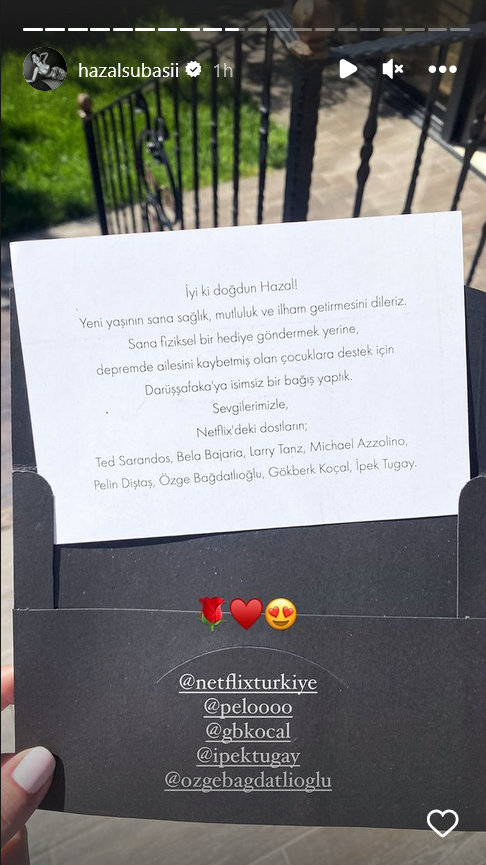 hazalsubasii 1h
İyi ki doğdun Hazal!
Yeni yaşının sana sağlık, mutluluk ve ilham getirmesini dileriz.
Sana fiziksel bir hediye göndermek yerine,
depremde ailesini kaybetmiş olan çocuklara destek için
Darüşşafaka'ya isimsiz bir bağış yaptık.
Sevgilerimizle,
Netflix'deki dostların;
Ted Sarandos, Bela Bajaria, Larry Tanz, Michael Azzolino,
Pelin Diştaş, Özge Bağdatlıoğlu, Gökberk Koçal, İpek Tugay.
🌹❤️😍
@netflixturkiye
@peloooo
@gbkocal
@ipektugay
@ozgebagdatlioglu